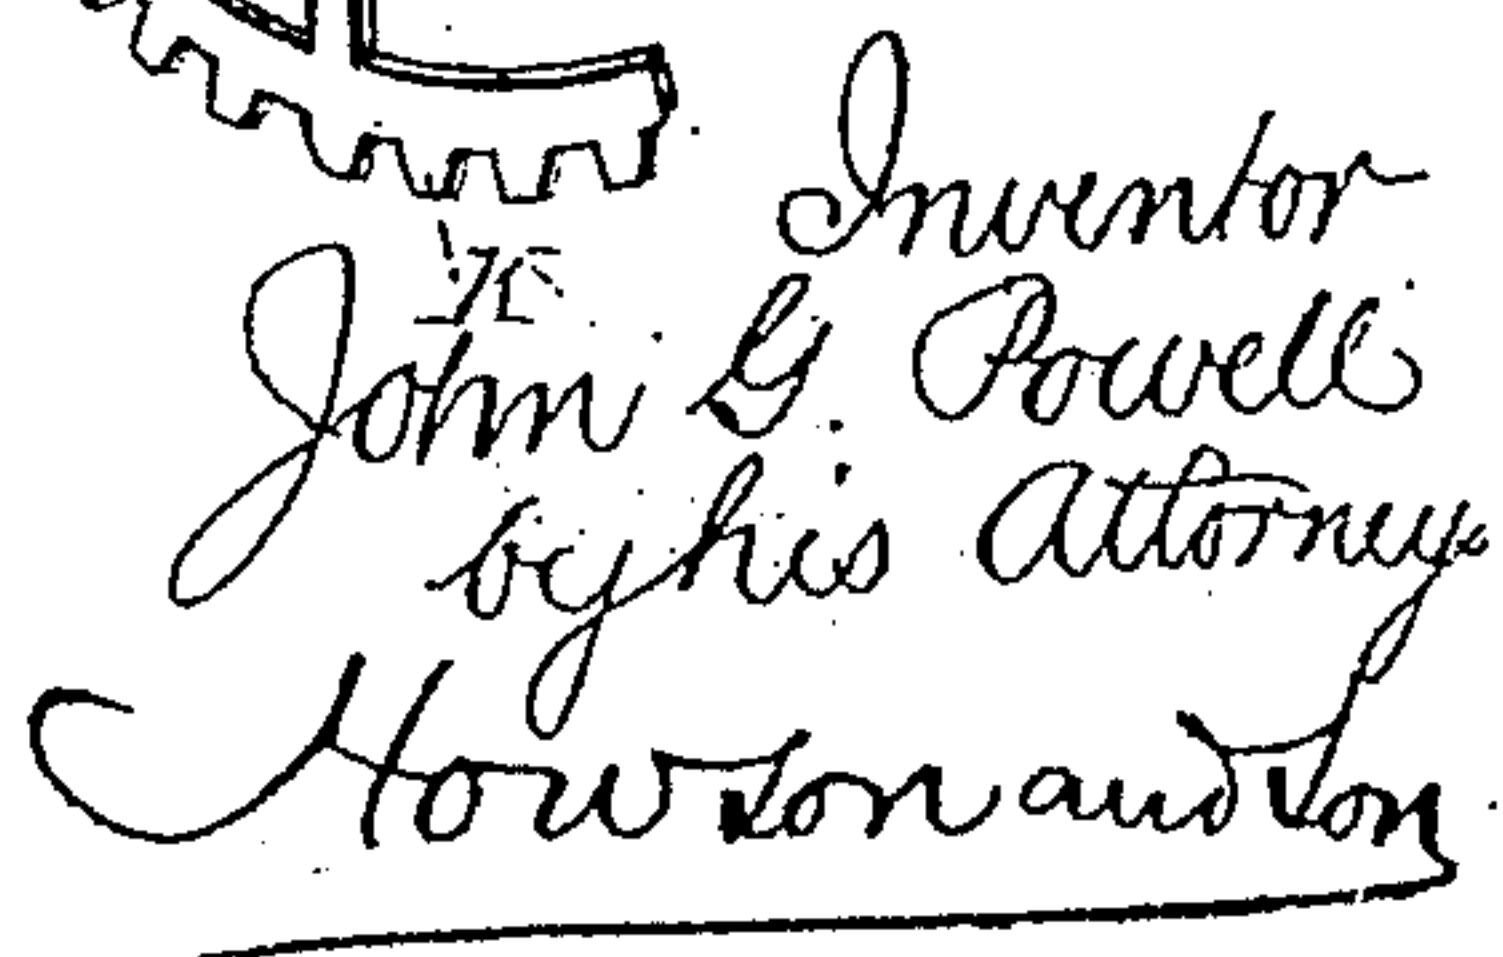 Inventor
John G. Powell
by his Attorneys
Howson and Son